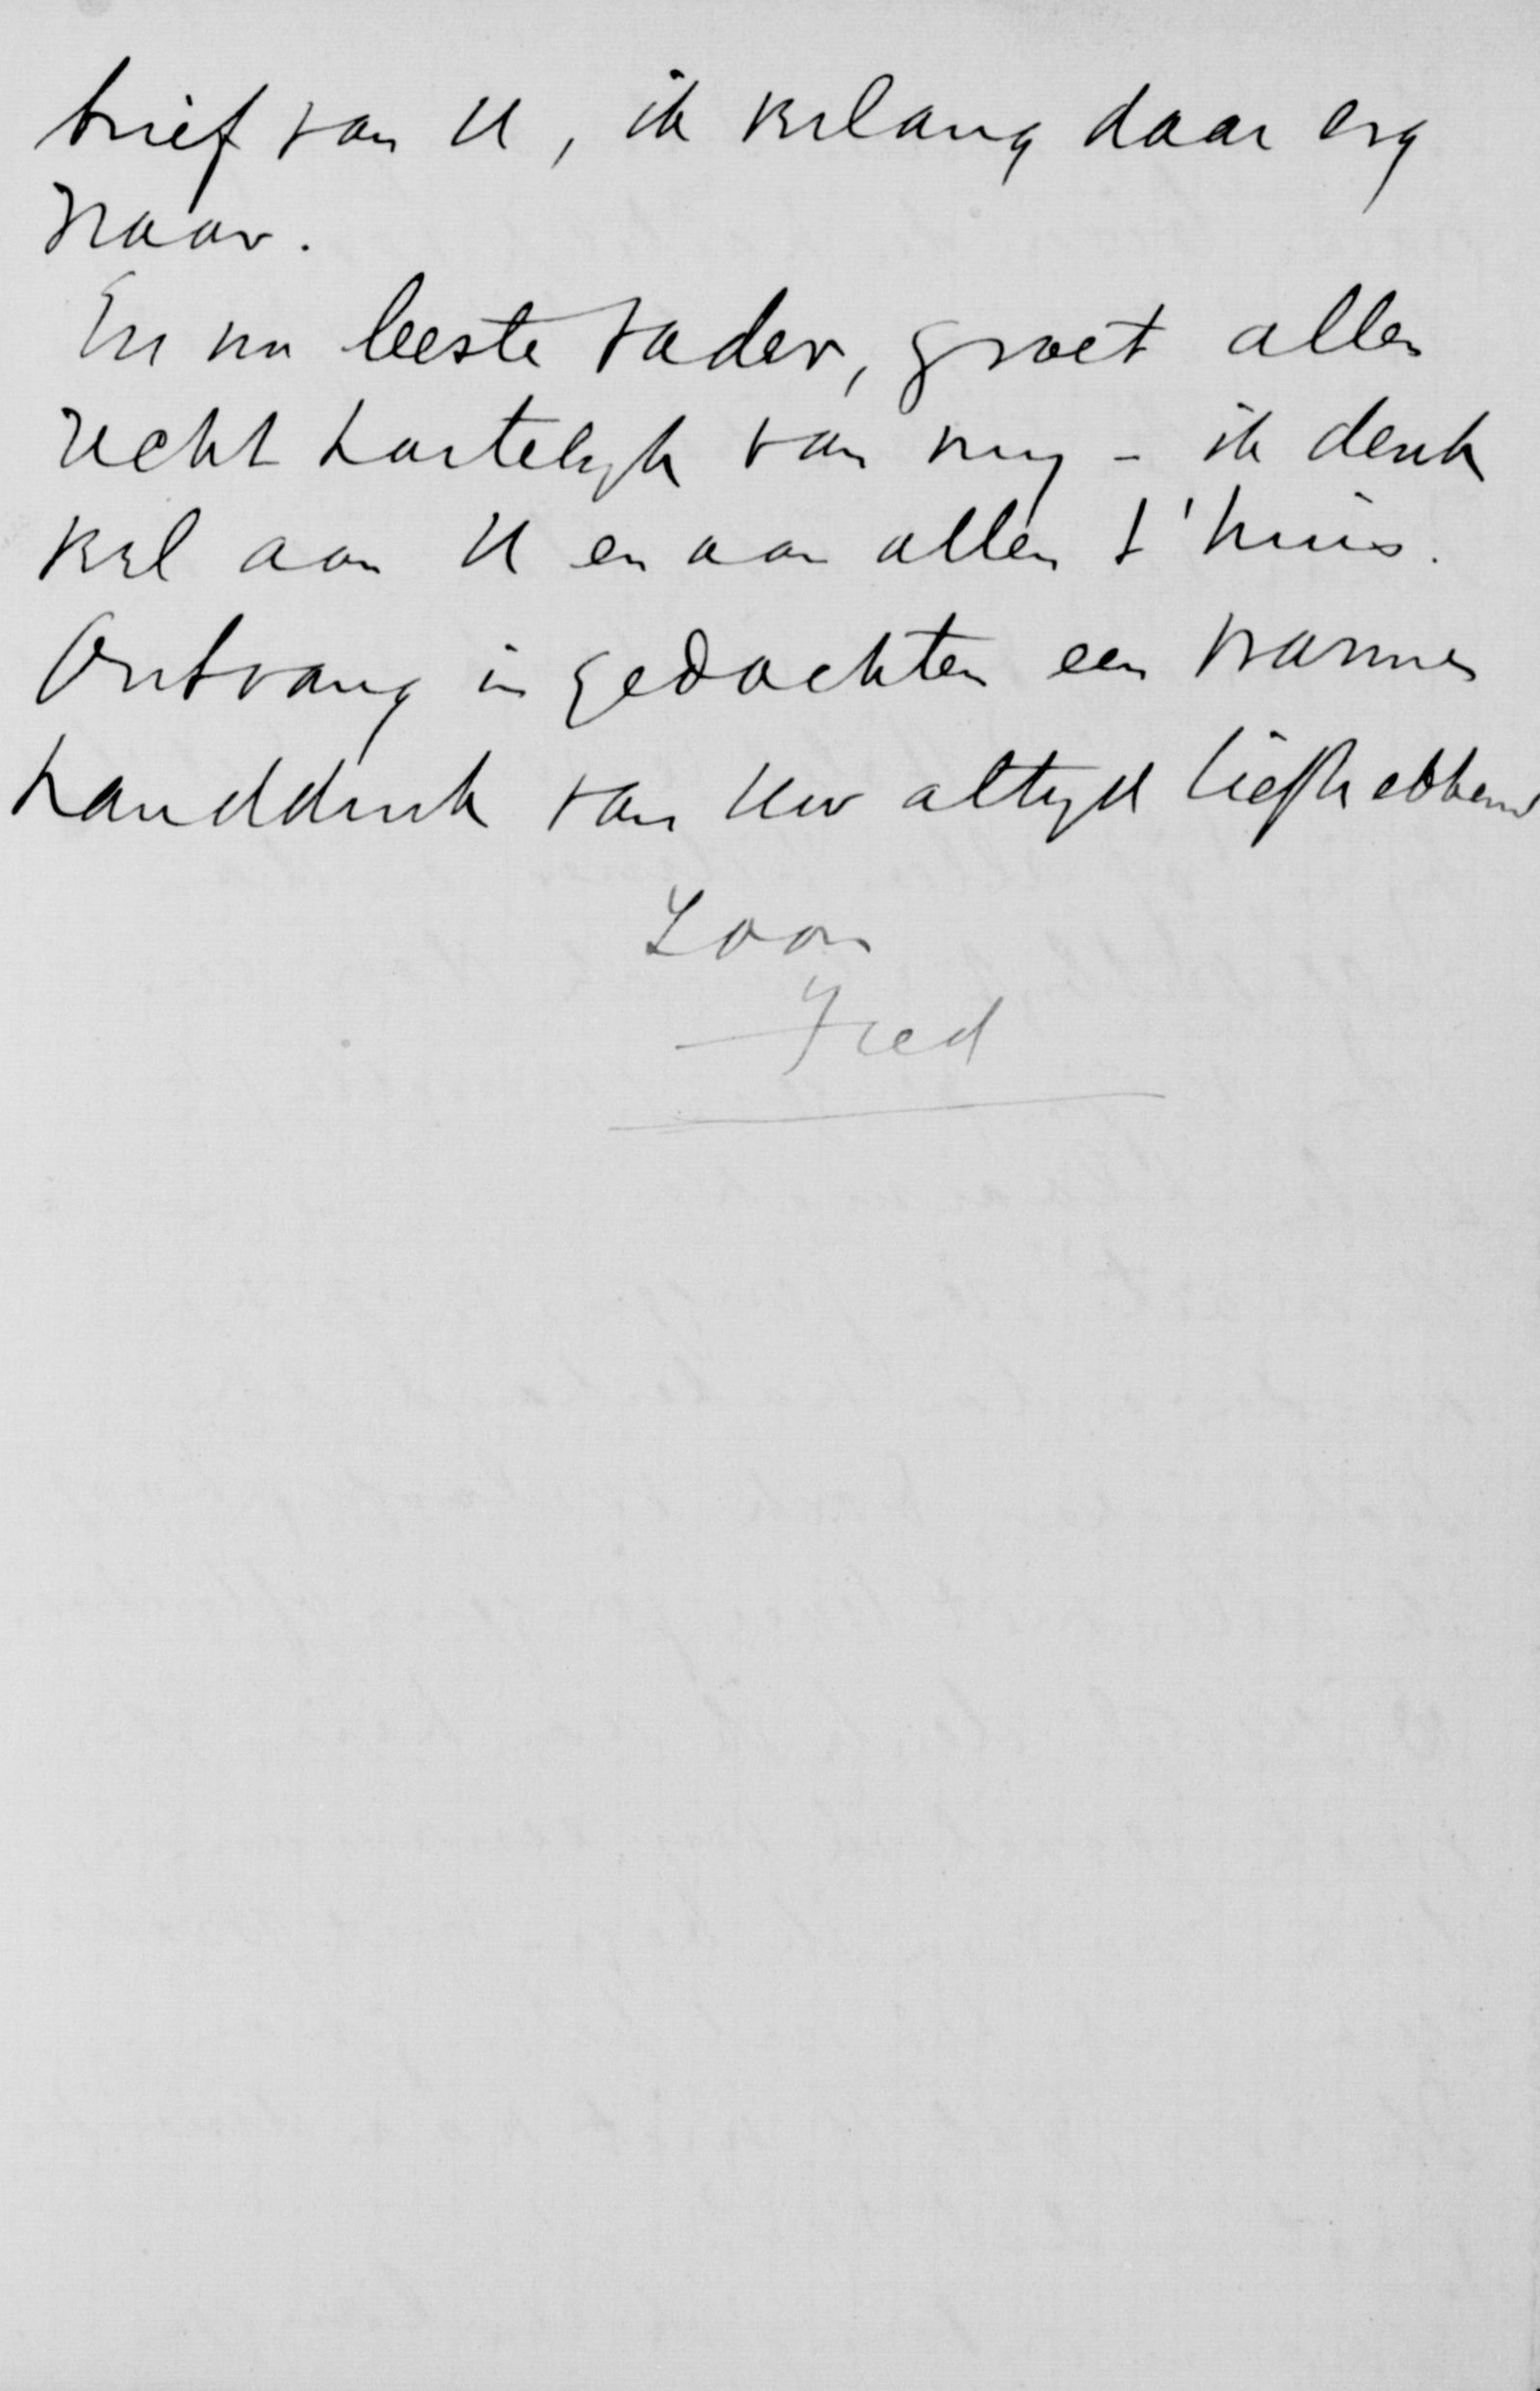 brief van U, ik verlang daar erg
naar.
En nu beste Vader, groet allen
recht hartelijk van mij - ik denk
veel aan U en aan allen t'huis.
Ontvang in gedachten een warmen
handdruk van Uw altijd liefhebbend
Zoon
Fred